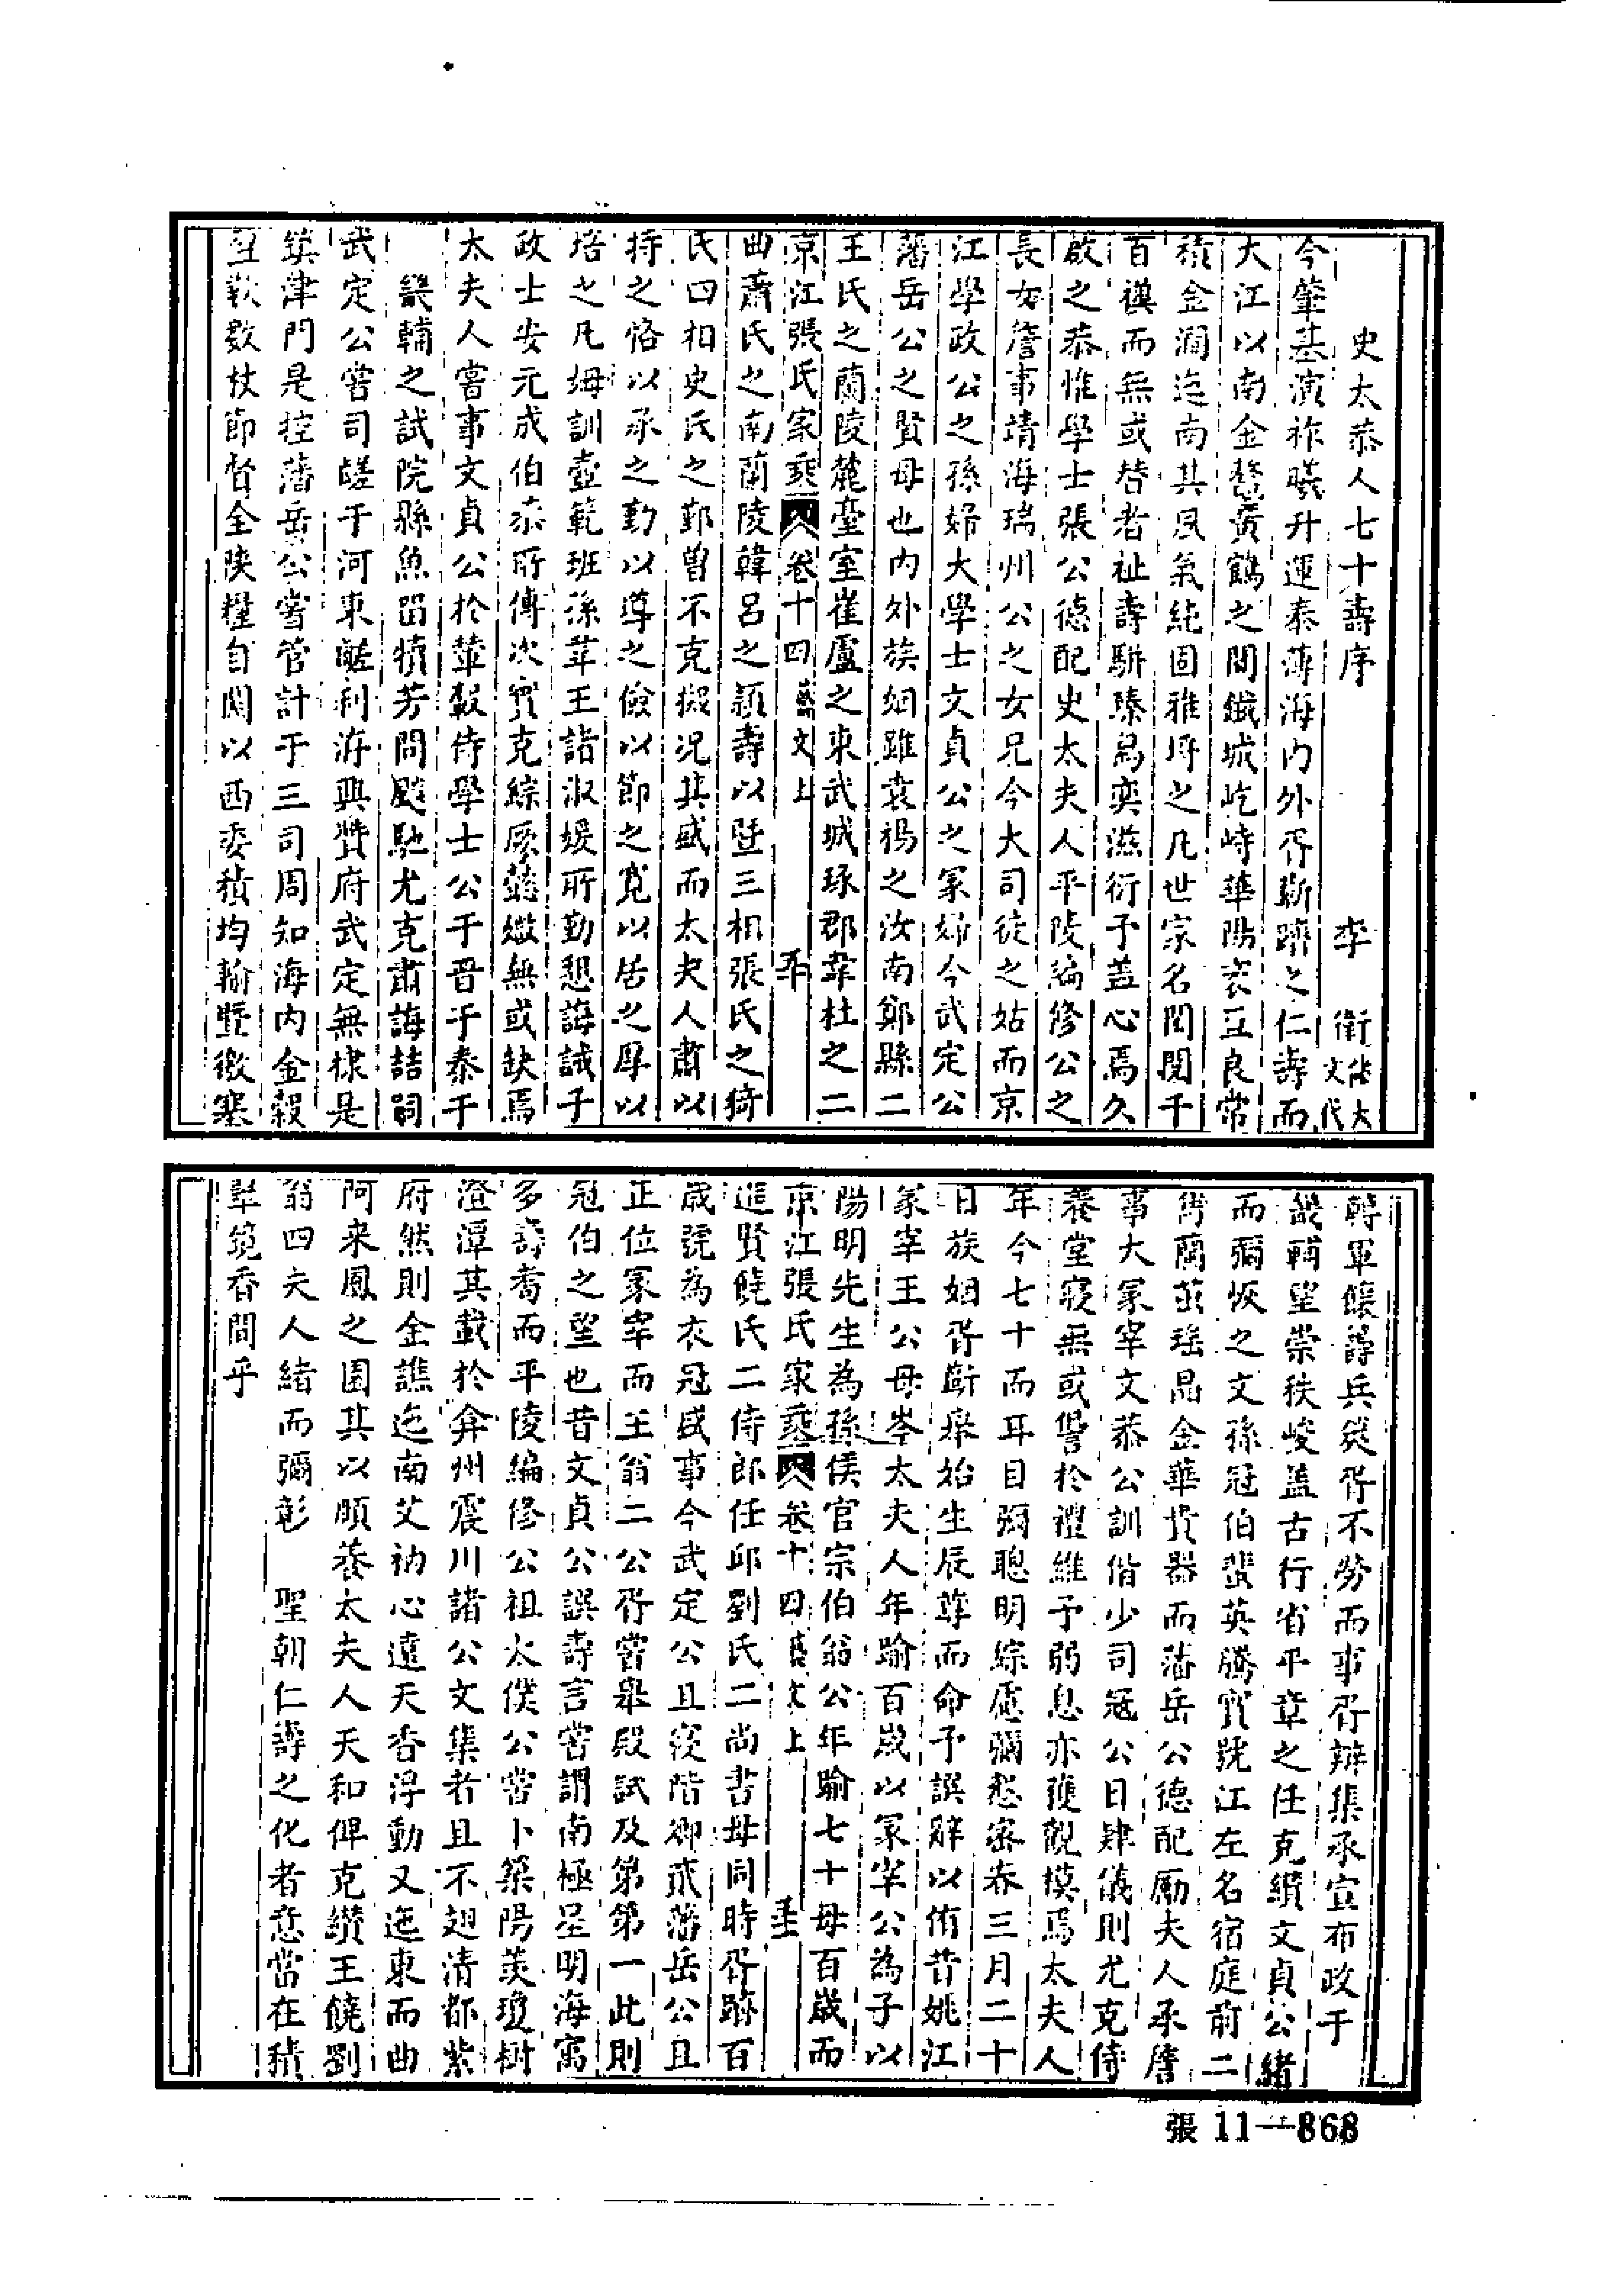 史太恭人七十壽序　李　衛代大文
今肇基演祚曦升運泰薄海內外胥斯躋之仁壽而
大江以南金鰲黃鶴之間鐵城屹峙華陽衺互良常
積金濶迤南其風氣純固雅埒之凡世家名閥閱千
百禩而無或替者祉壽駢臻爲奕滋衍予蓋心焉久
啟之恭惟學士張公德配史太夫人平陵編修公之
長女詹事靖海瑞州公之女兄今大司徒之姑而京
江學政公之孫婦大學士文貞公之冢婦今武定公
藩岳公之賢母也內外族姻雖袁楊之汝南鄭縣二
王氏之蘭陵麓臺室崔盧之東武城琢郡韋杜之二
京江張氏家乘　卷十四　藝文上
曲蕭氏之南蘭陵韓呂之潁壽以暨三相張氏之猗
氏四相史氏之鄞曾不克擬况其盛而太夫人肅以
持之恪以承之勤以導之儉以節之寬以居之厚以
培之凡姆訓壼範班孫華王諸淑媛所勤懇誨誡予
政士安元成伯宗所傳次實克綜厥懿嫩無或缺焉
太夫人嘗事文貞公於輦轂侍學士公于晋于秦于
畿輔之試院縣魚留犢芳問飈馳尤克肅誨喆嗣
武定公嘗司鹺于河東鹺利洊興贊府武定無棣是
鎮津門是控藩岳公嘗管計于三司周知海內金穀
互欵數杖節督全陝糧自關以西委積均輸暨徼塞
轉軍饟籌兵食胥不勞而事胥辦集承宣布政于
畿輔望崇秩峻蓋古行省平章之任克纘文貞公緒
而彌恢之文孫冠伯蜚英騰實號江左名宿庭前二
雋蘭茁瑤晶金華貴器而藩岳公德配勵夫人承詹
事大冢宰文恭公訓偕少司冠公日肄儀則尤克侍
養堂寢無或諐於禮維予弱息亦獲觀摸焉太夫人
年今七十而耳目彌聰明綜慮彌愁密春三月二十
日族姻胥斷舉始生辰尊而命予譔辭以侑昔姚江
冢宰王公母岑太夫人年踰百歲以冢宰公為子以
陽明先生為孫侯官宗伯翁公年踰七十母百歲而
京江張氏家乘　卷十四　藝文上
進賢饒氏二侍郎任邱劉氏二尚書母同時胥躋百
歲號為衣冠盛事今武定公且涖階卿貳藩岳公且
正位冢宰而王翁二公胥嘗舉殿試及第第一此則
冠伯之望也昔文貞公譔壽言嘗謂南極星明海寓
多壽耇而平陵編修公祖太僕公嘗卜築陽羨瓊樹
澄潭其載於弇州震川諸公文集者且不翅清都紫
府然則金譙迤南艾衲心遠天香浮動又迤東而曲
阿来鳳之園其以頤養太夫人天和俾克纘王饒劉
翁四夫人緒而彌彰　聖朝仁壽之化者意當在積
犨筦香間乎
張 11—868